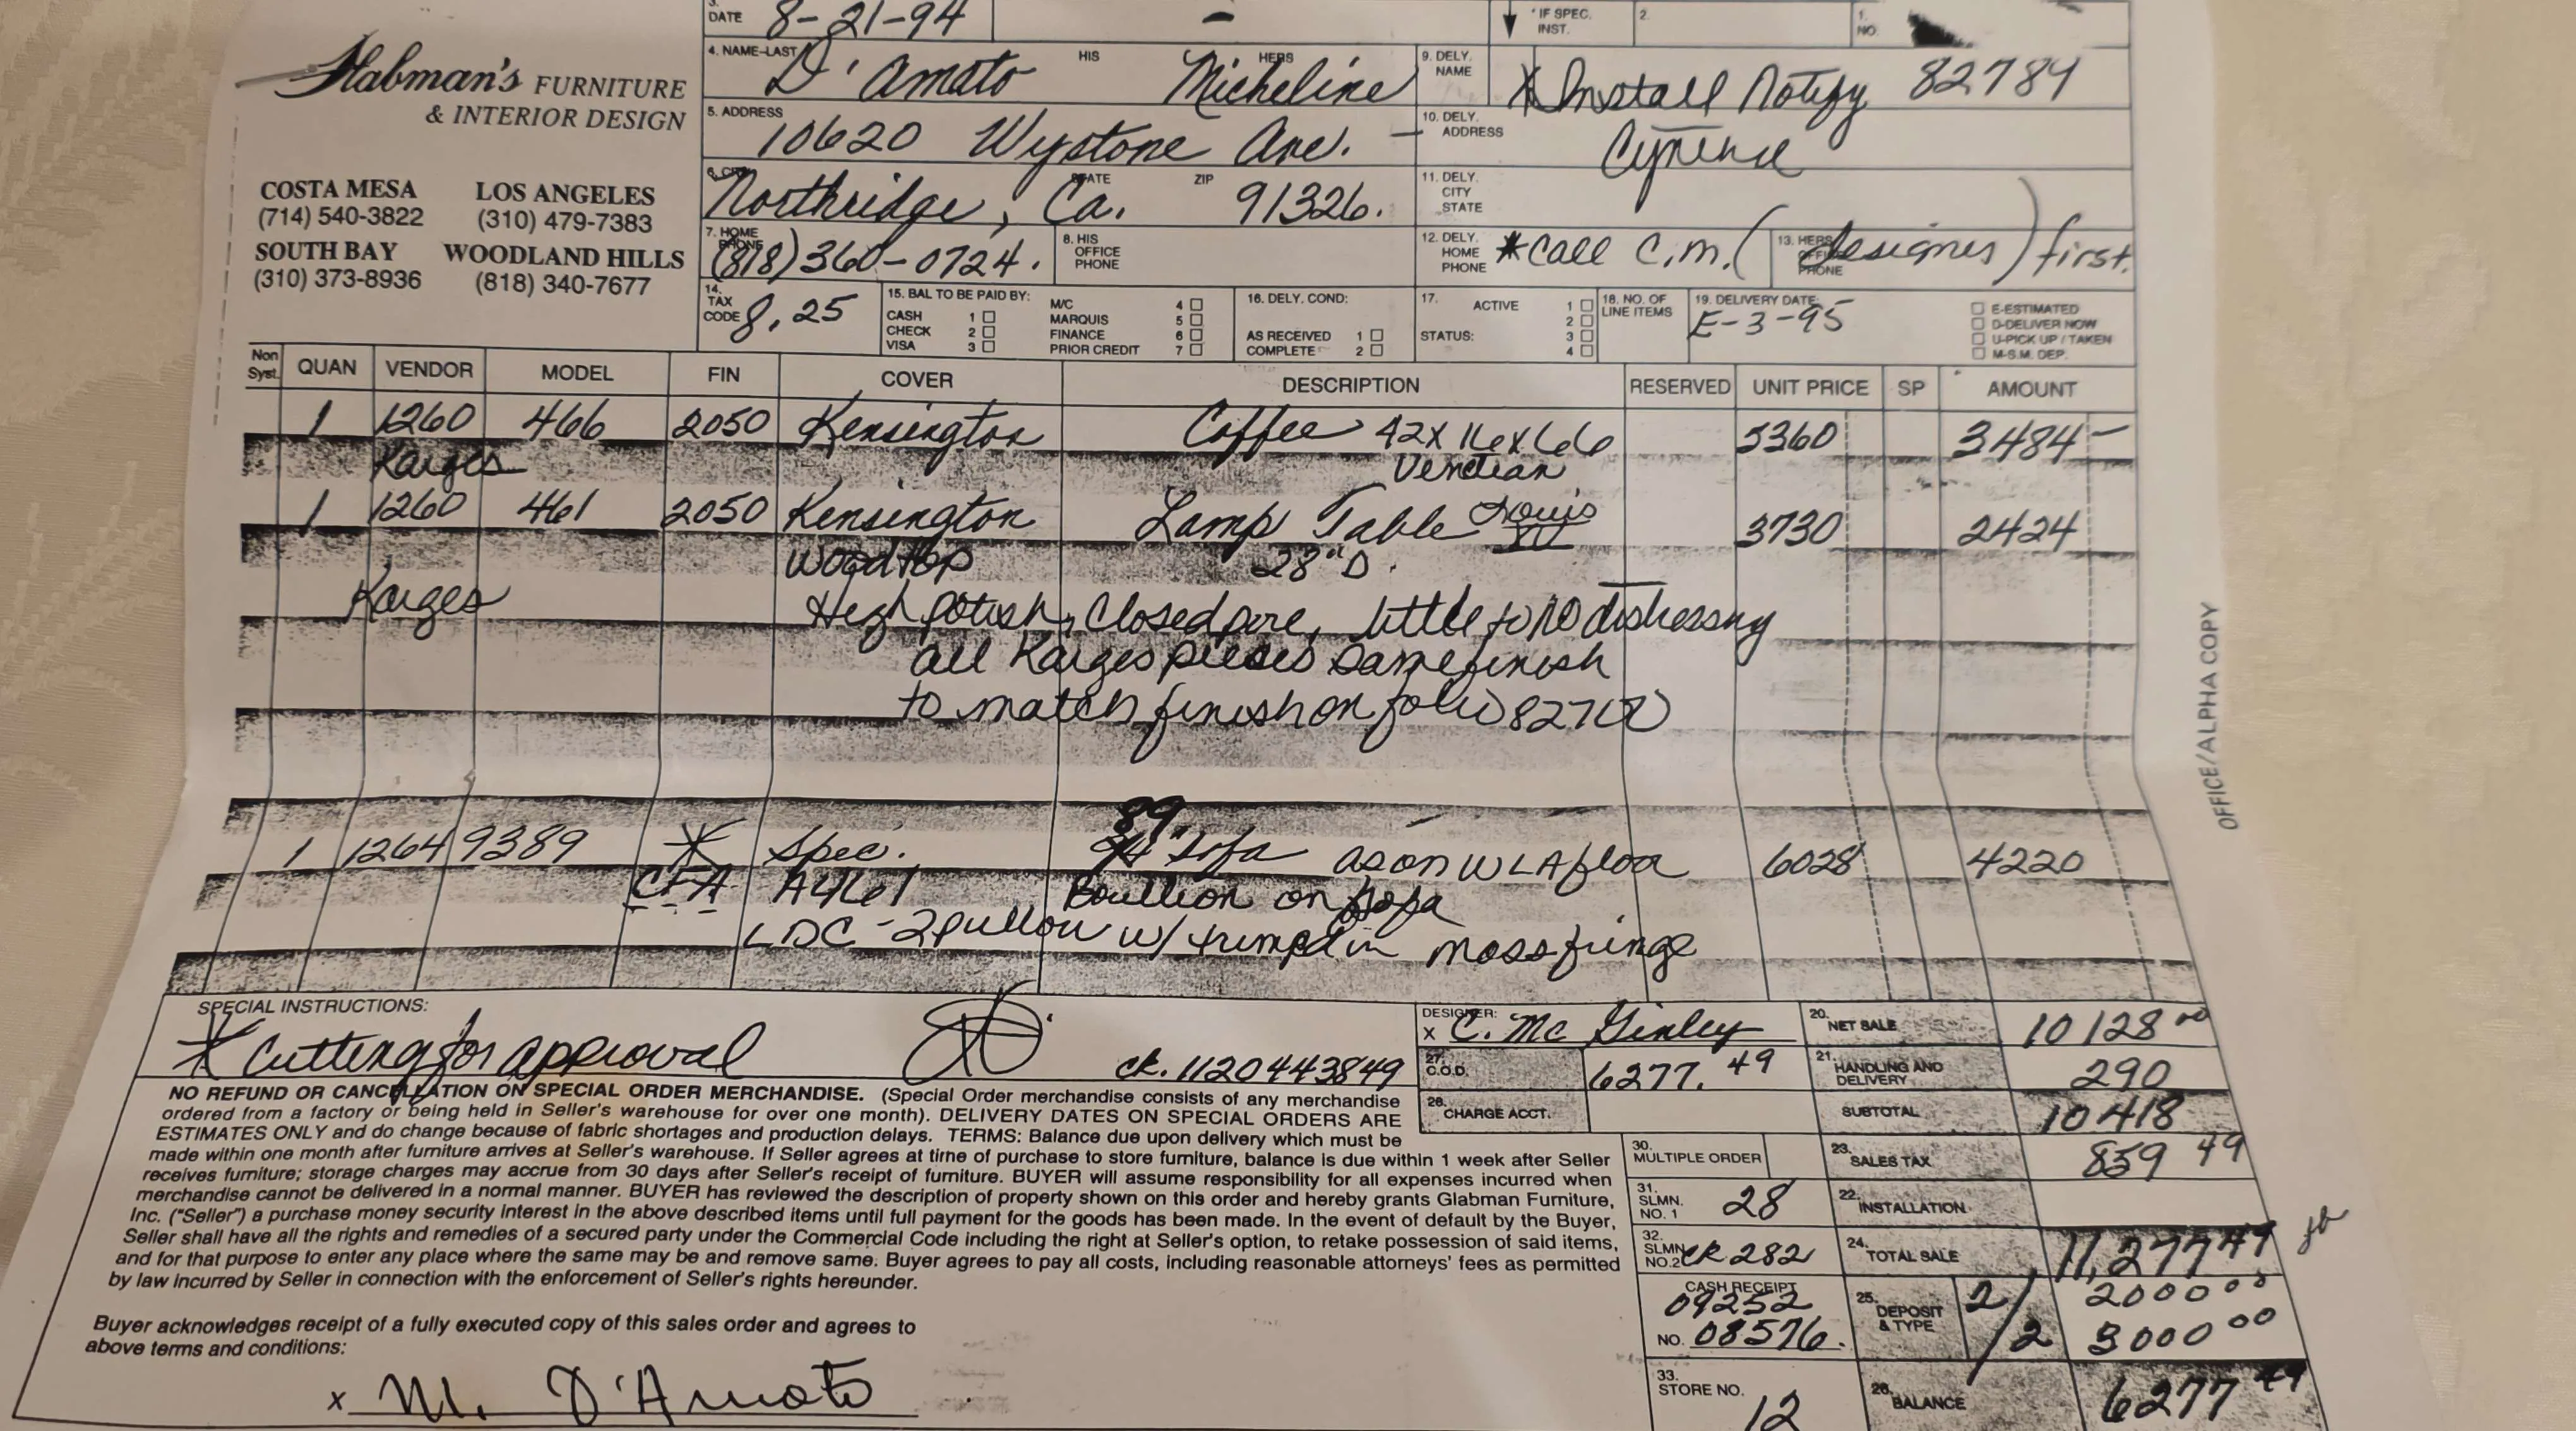 3. DATE 8-21-94 -
* IF SPEC. INST. 2. 1. NO.
Glabman's FURNITURE
& INTERIOR DESIGN
COSTA MESA LOS ANGELES
(714) 540-3822 (310) 479-7383
SOUTH BAY WOODLAND HILLS
(310) 373-8936 (818) 340-7677
4. NAME-LAST D'Amato HIS HERS Micheline
9. DELY. NAME X Install Notify 82784
5. ADDRESS 10620 Wystone Ave. -
10. DELY. ADDRESS
6. CITY Northridge, STATE Ca. ZIP 91326.
11. DELY. CITY STATE
7. HOME PHONE (818) 360-0724.
8. HIS OFFICE PHONE
12. DELY. HOME PHONE *Call C.M. (designer) first.
13. HERS OFFICE PHONE
14. TAX CODE 8.25
15. BAL TO BE PAID BY:
CASH 1
CHECK 2
VISA 3
M/C 4
MARQUIS 5
FINANCE 6
PRIOR CREDIT 7
16. DELY. COND:
AS RECEIVED 1
COMPLETE 2
17. STATUS: ACTIVE 1
2
3
4
18. NO. OF LINE ITEMS
19. DELIVERY DATE E-3-95
E-ESTIMATED
D-DELIVER NOW
U-PICK UP / TAKEN
M-S.M. DEP.
Non Syst. QUAN VENDOR MODEL FIN COVER DESCRIPTION RESERVED UNIT PRICE SP AMOUNT
1 1260 466 2050 Kensington Coffee 42x16x66 5360 3484-
Karges Venetian
1 1260 461 2050 Kensington Lamp Table Louis XV 3730 2424
Woodtop 28"D.
Karges High polish, Closed pore, little to no distressing
all Karges pieces same finish
to match finish on folio
89
1 1264 9389 * Spec. Sofa as on WLA floor 6028 4220
CFA A4461 Boullion on sofa
LDC - 2 pillow w/ trimped in moss fringe
SPECIAL INSTRUCTIONS:
* Cutting for approval
ck. 1120443849
DESIGNER:
X C. McGinley
27. C.O.D. 6277.49
28. CHARGE ACCT.
20. NET SALE 10128 00
21. HANDLING AND DELIVERY 290
SUBTOTAL 10418
23. SALES TAX 859 49
22. INSTALLATION
24. TOTAL SALE 11,277 49
25. DEPOSIT & TYPE 2/ 2000 00
/2 3000 00
26. BALANCE 6277 49
30. MULTIPLE ORDER
31. SLMN. NO. 1 28
32. SLMN. NO. 2 CK 282
CASH RECEIPT
09252
NO. 08576.
33. STORE NO. 12
NO REFUND OR CANCELLATION ON SPECIAL ORDER MERCHANDISE. (Special Order merchandise consists of any merchandise
ordered from a factory or being held in Seller's warehouse for over one month). DELIVERY DATES ON SPECIAL ORDERS ARE
ESTIMATES ONLY and do change because of fabric shortages and production delays. TERMS: Balance due upon delivery which must be
made within one month after furniture arrives at Seller's warehouse. If Seller agrees at time of purchase to store furniture, balance is due within 1 week after Seller
receives furniture; storage charges may accrue from 30 days after Seller's receipt of furniture. BUYER will assume responsibility for all expenses incurred when
merchandise cannot be delivered in a normal manner. BUYER has reviewed the description of property shown on this order and hereby grants Glabman Furniture,
Inc. ("Seller") a purchase money security interest in the above described items until full payment for the goods has been made. In the event of default by the Buyer,
Seller shall have all the rights and remedies of a secured party under the Commercial Code including the right at Seller's option, to retake possession of said items,
and for that purpose to enter any place where the same may be and remove same. Buyer agrees to pay all costs, including reasonable attorneys' fees as permitted
by law incurred by Seller in connection with the enforcement of Seller's rights hereunder.
Buyer acknowledges receipt of a fully executed copy of this sales order and agrees to
above terms and conditions:
x M. D'Amato
OFFICE/ALPHA COPY